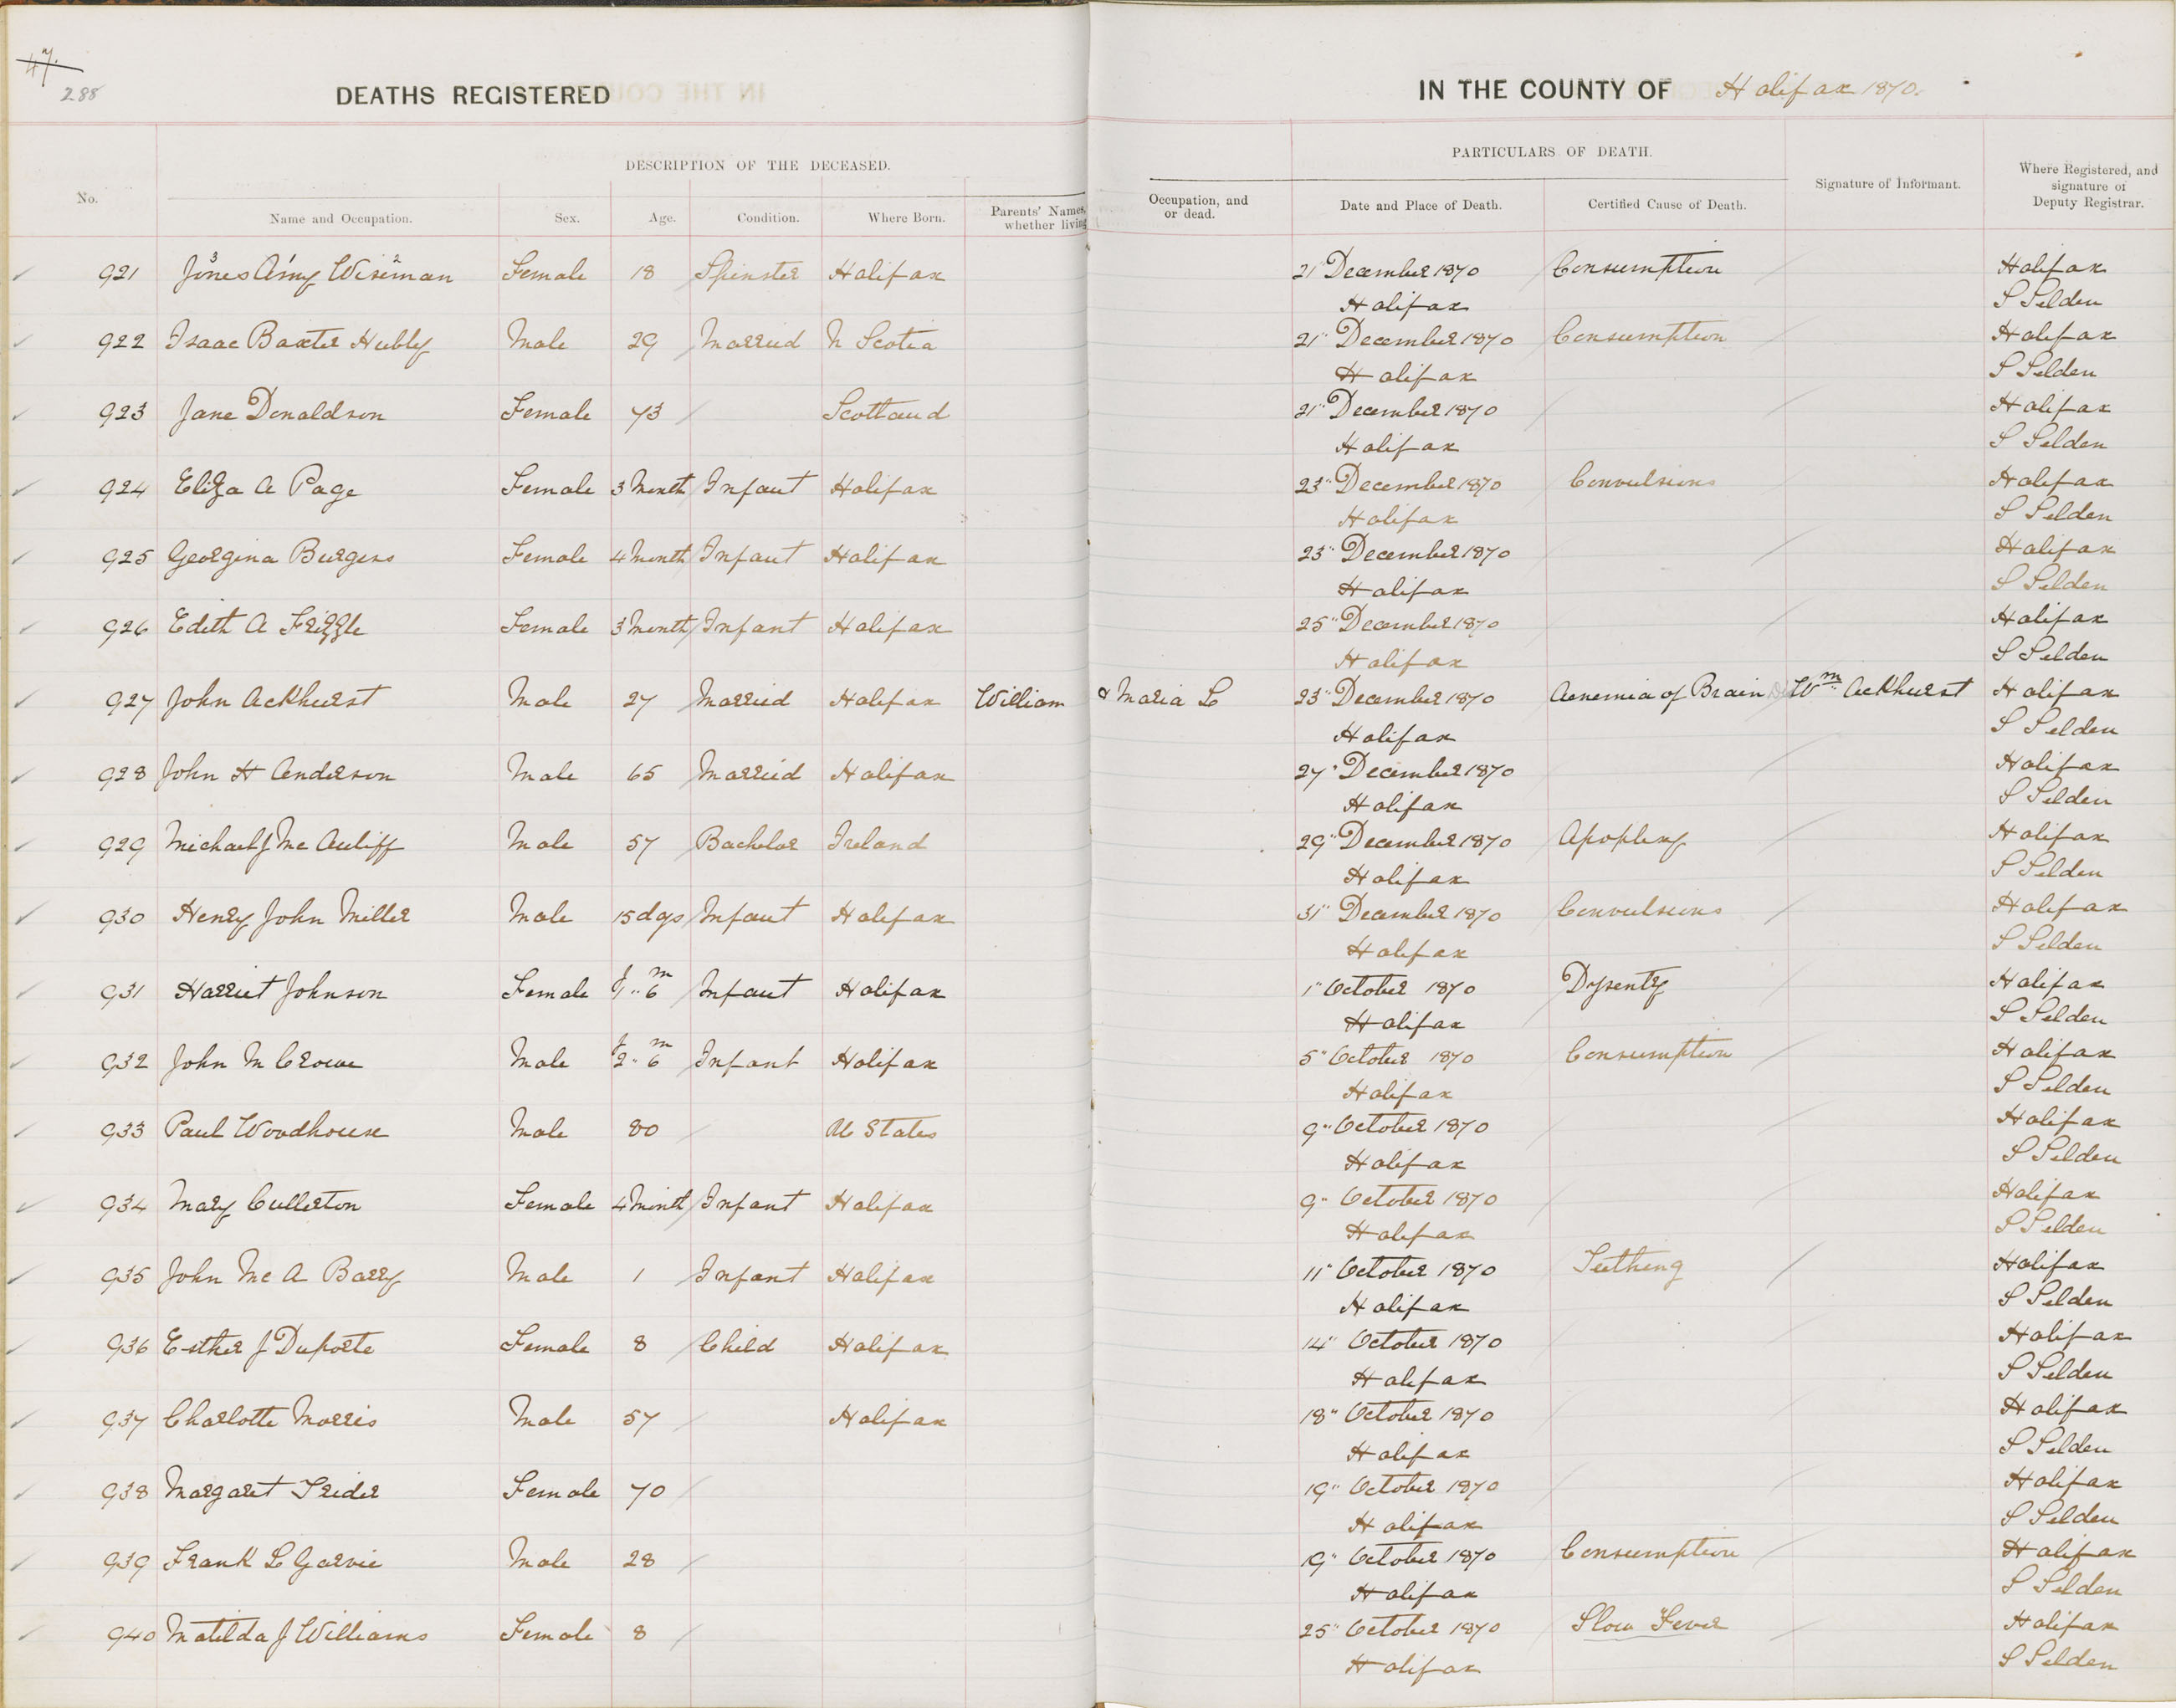 47.
288
DEATHS REGISTERED
IN THE COUNTY OF Halifax 1870.
DESCRIPTION OF THE DECEASED.
PARTICULARS OF DEATH.
No.
Name and Occupation. Sex. Age. Condition. Where Born. Parents' Names, whether living
Occupation, and or dead. Date and Place of Death. Certified Cause of Death. Signature of Informant. Where Registered, and signature of Deputy Registrar.
921 Jones Amy Wiseman Female 18 Spinster Halifax 21" December 1870 Consumption Halifax
3 1 2
Halifax S Selden
922 Isaac Baxter Hubly Male 29 Married N Scotia 21" December 1870 Consumption Halifax
Halifax S Selden
923 Jane Donaldson Female 73 Scotland 21" December 1870 Halifax
Halifax S Selden
924 Eliza A Page Female 3 Month Infant Halifax 23" December 1870 Convulsions Halifax
Halifax S Selden
925 Georgina Burgess Female 4 Month Infant Halifax 23" December 1870 Halifax
Halifax S Selden
926 Edith A Frizzle Female 3 Month Infant Halifax 25" December 1870 Halifax
Halifax S Selden
927 John Ackhurst Male 27 Married Halifax William & Maria L 23" December 1870 Aenemia of Brain Wm Ackhurst Halifax
Halifax S Selden
928 John H Anderson Male 65 Married Halifax 27" December 1870 Halifax
Halifax S Selden
929 Michael J Mc Auliff Male 57 Bachelor Ireland 29" December 1870 Apoplexy Halifax
Halifax S Selden
930 Henry John Miller Male 15 dys Infant Halifax 31" December 1870 Convulsions Halifax
Halifax S Selden
931 Harriet Johnson Female y 1 " m 6 Infant Halifax 1" October 1870 Dysentry Halifax
Halifax S Selden
932 John M Crowe Male y 2 " m 6 Infant Halifax 5" October 1870 Consumption Halifax
Halifax S Selden
933 Paul Woodhouse Male 80 U States 9" October 1870 Halifax
Halifax S Selden
934 Mary Cullerton Female 4 Month Infant Halifax 9" October 1870 Halifax
Halifax S Selden
935 John Mc A Barry Male 1 Infant Halifax 11" October 1870 Teething Halifax
Halifax S Selden
936 Esther J Duporte Female 8 Child Halifax 14" October 1870 Halifax
Halifax S Selden
937 Charlotte Morris Male 57 Halifax 18" October 1870 Halifax
Halifax S Selden
938 Margaret Trider Female 70 19" October 1870 Halifax
Halifax S Selden
939 Frank L Garvie Male 28 19" October 1870 Consumption Halifax
Halifax S Selden
940 Matilda J Williams Female 8 25" October 1870 Slow Fever Halifax
Halifax S Selden